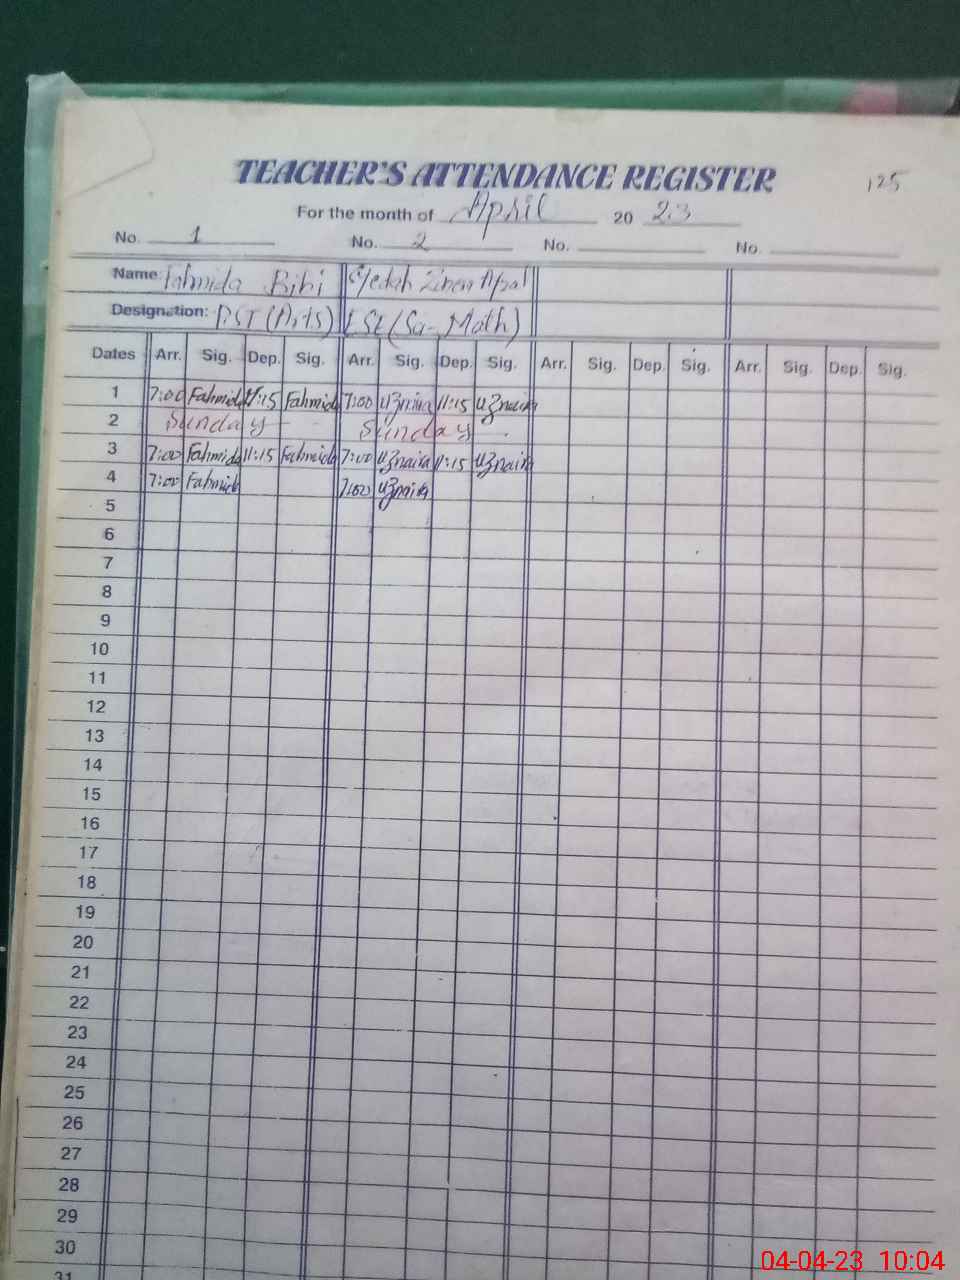 TEACHER'S ATTENDANCE REGISTER
125
For the month of April 20 23
No. 1 No. 2 No. No.
Name: Fahmida Bibi
Designation: PST (Arts) ESE (Sci-Math)
Dates Arr. Sig. Dep. Sig. Arr. Sig. Dep. Sig. Arr. Sig. Dep. Sig. Arr. Sig. Dep. Sig.
1 7:00 Fahmida 11:15 Fahmida 7:00 uznaira 11:15 uznaira
2 Sunday Sunday
3 7:00 Fahmida 11:15 Fahmida 7:00 uznaira 11:15 uznaira
4 7:00 Fahmida 7:00 uznaira
5
6
7
8
9
10
11
12
13
14
15
16
17
18
19
20
21
22
23
24
25
26
27
28
29
30
31
04-04-23 10:04